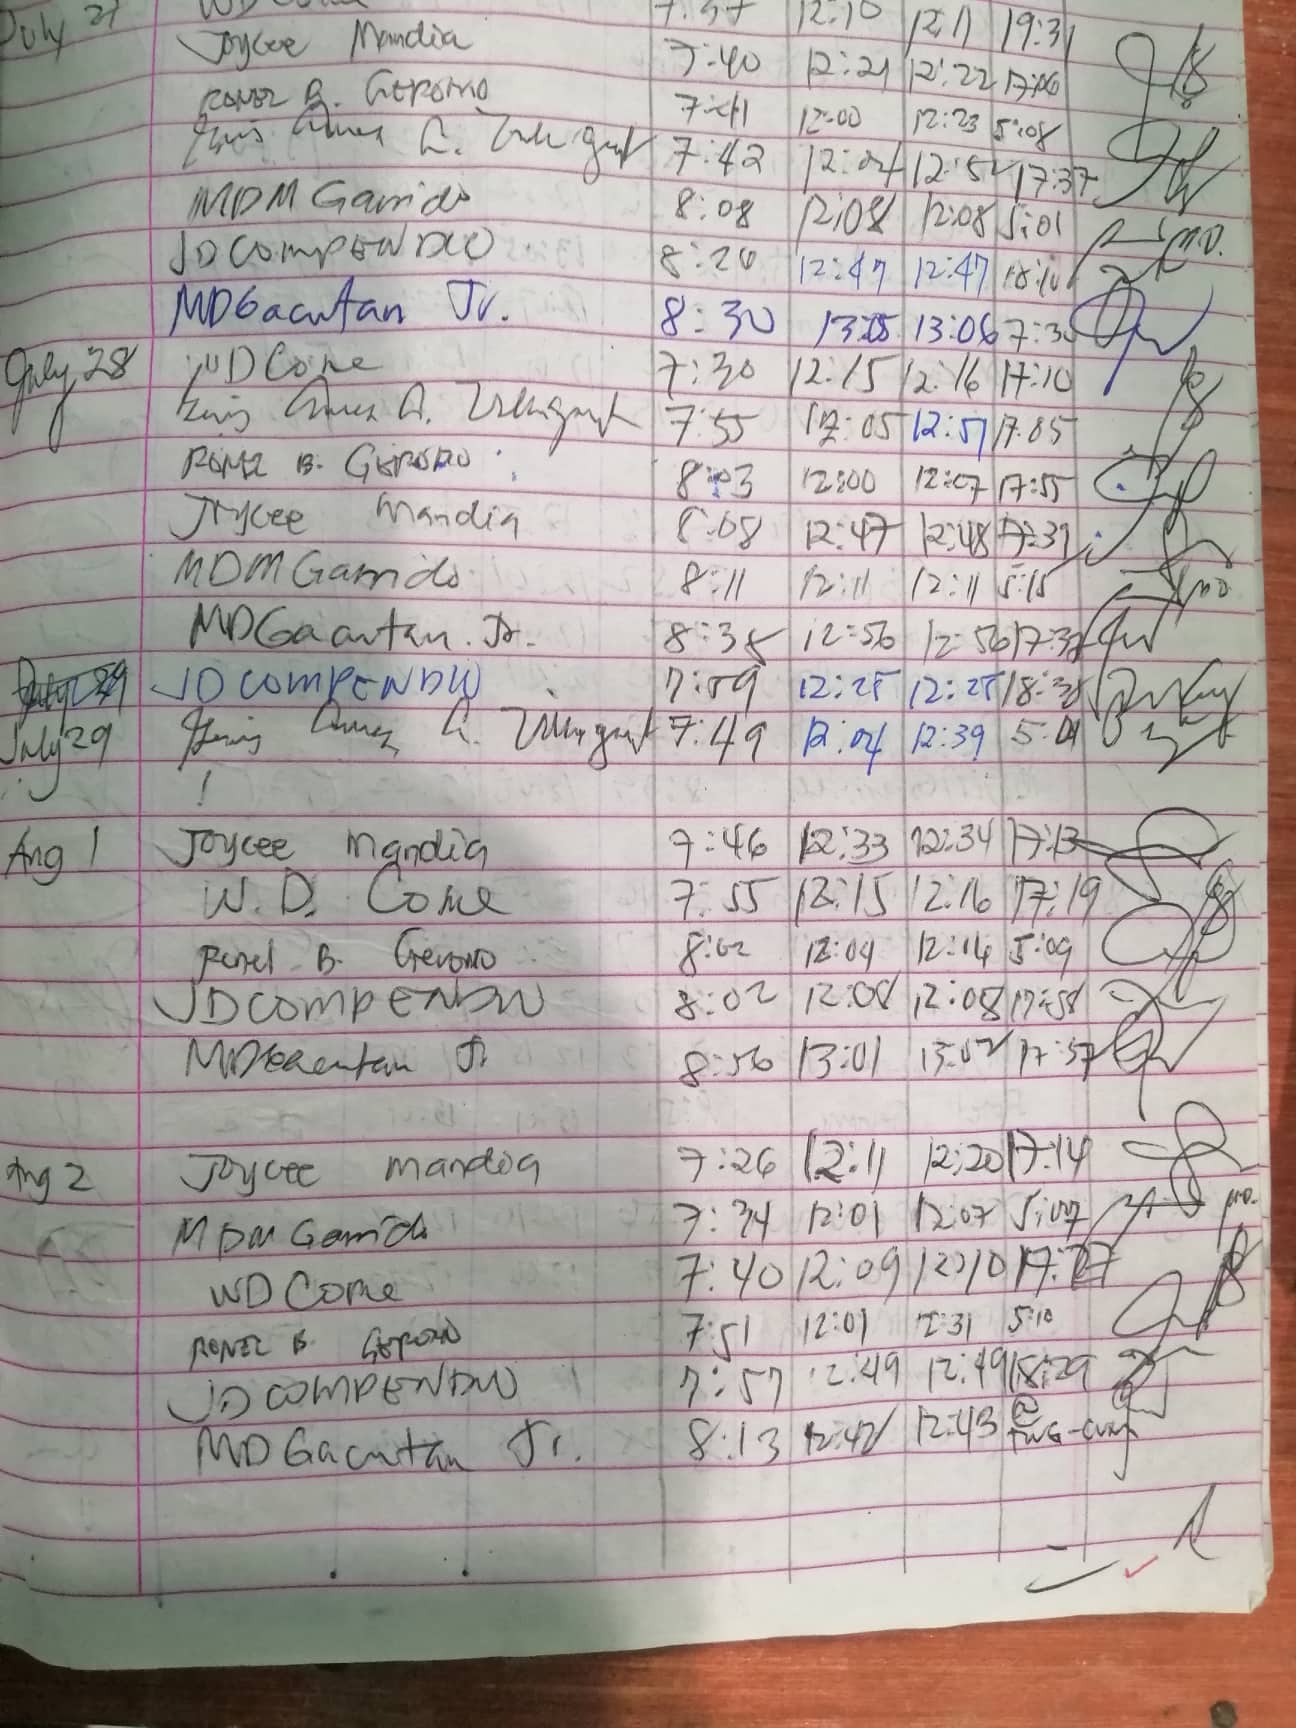 July 27 WD Come 7:37 12:10 12:11 19:31
Joycee Mandia 7:40 12:21 12:22 17:06
RONEL B. GERONO 7:41 12:00 12:23 5:08
A. 7:42 12:04 17:37
MDM Garrido 8:08 12:08 12:08 5:01
JD COMPENDIO 8:20 12:47 12:47
MDGacutan Jr. 8:30 13:05 13:06
July 28 WD Come 7:30 12:15 12:16 17:10
A. 7:55 12:05 12:51 17:05
RONEL B. GERONO 8:03 12:00 12:07 17:55
Joycee Mandia 8:08 12:47 12:48 17:31
MDM Garrido 8:11 12:11 12:11 5:15
MDGacutan Jr. 8:35 12:56 12:56
JD COMPENDIO 7:59 12:25 12:25
July 29 A. 7:49 12:04 12:39
Aug 1 Joycee Mandia 7:46 12:33 12:34 17:13
W.D. Come 7:55 12:15 12:16 17:19
Ronel B. Gerono 8:02 12:09 12:14 5:09
JD COMPENDIO 8:02 12:08 12:08 17:58
MDGacutan Jr 8:56 13:01 13:02 17:57
Aug 2 Joycee Mandia 7:26 12:11 12:20 17:14
MDM Garrido 7:34 12:01 12:07 5:07
WD Come 7:40 12:09 12:10
RONEL B. GERONO 7:51 12:01 5:10
JD COMPENDIO 7:57 12:49 12:49 18:29
MD Gacutan Jr. 8:13 12:42 12:43